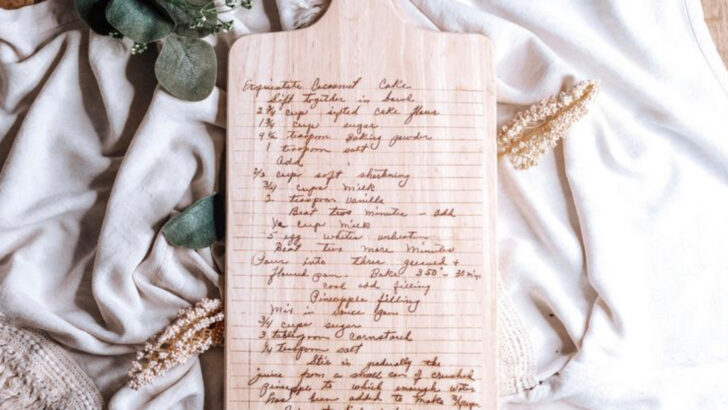 Exquisite Cocoanut Cake
Sift together in bowl
2 3/4 cup sifted cake flour
1 3/4 cup sugar
4 1/2 teaspoon baking powder
1 teaspoon salt
Add
2/3 cup soft shortening
3/4 cups milk
2 teaspoon vanilla
Beat two minutes - add
1/2 cup milk
5 egg whites unbeaten
Beat two more minutes
Pour into three greased +
floured pan. Bake 350° 30 min
cool add filling
Pineapple filling
Mix in sauce pan
3/4 cups sugar
3 tablespoon cornstarch
1/4 teaspoons salt
Stir in gradually the
juice from a small can of crushed
pineapple to which enough water
has been added to make 3/4 cup